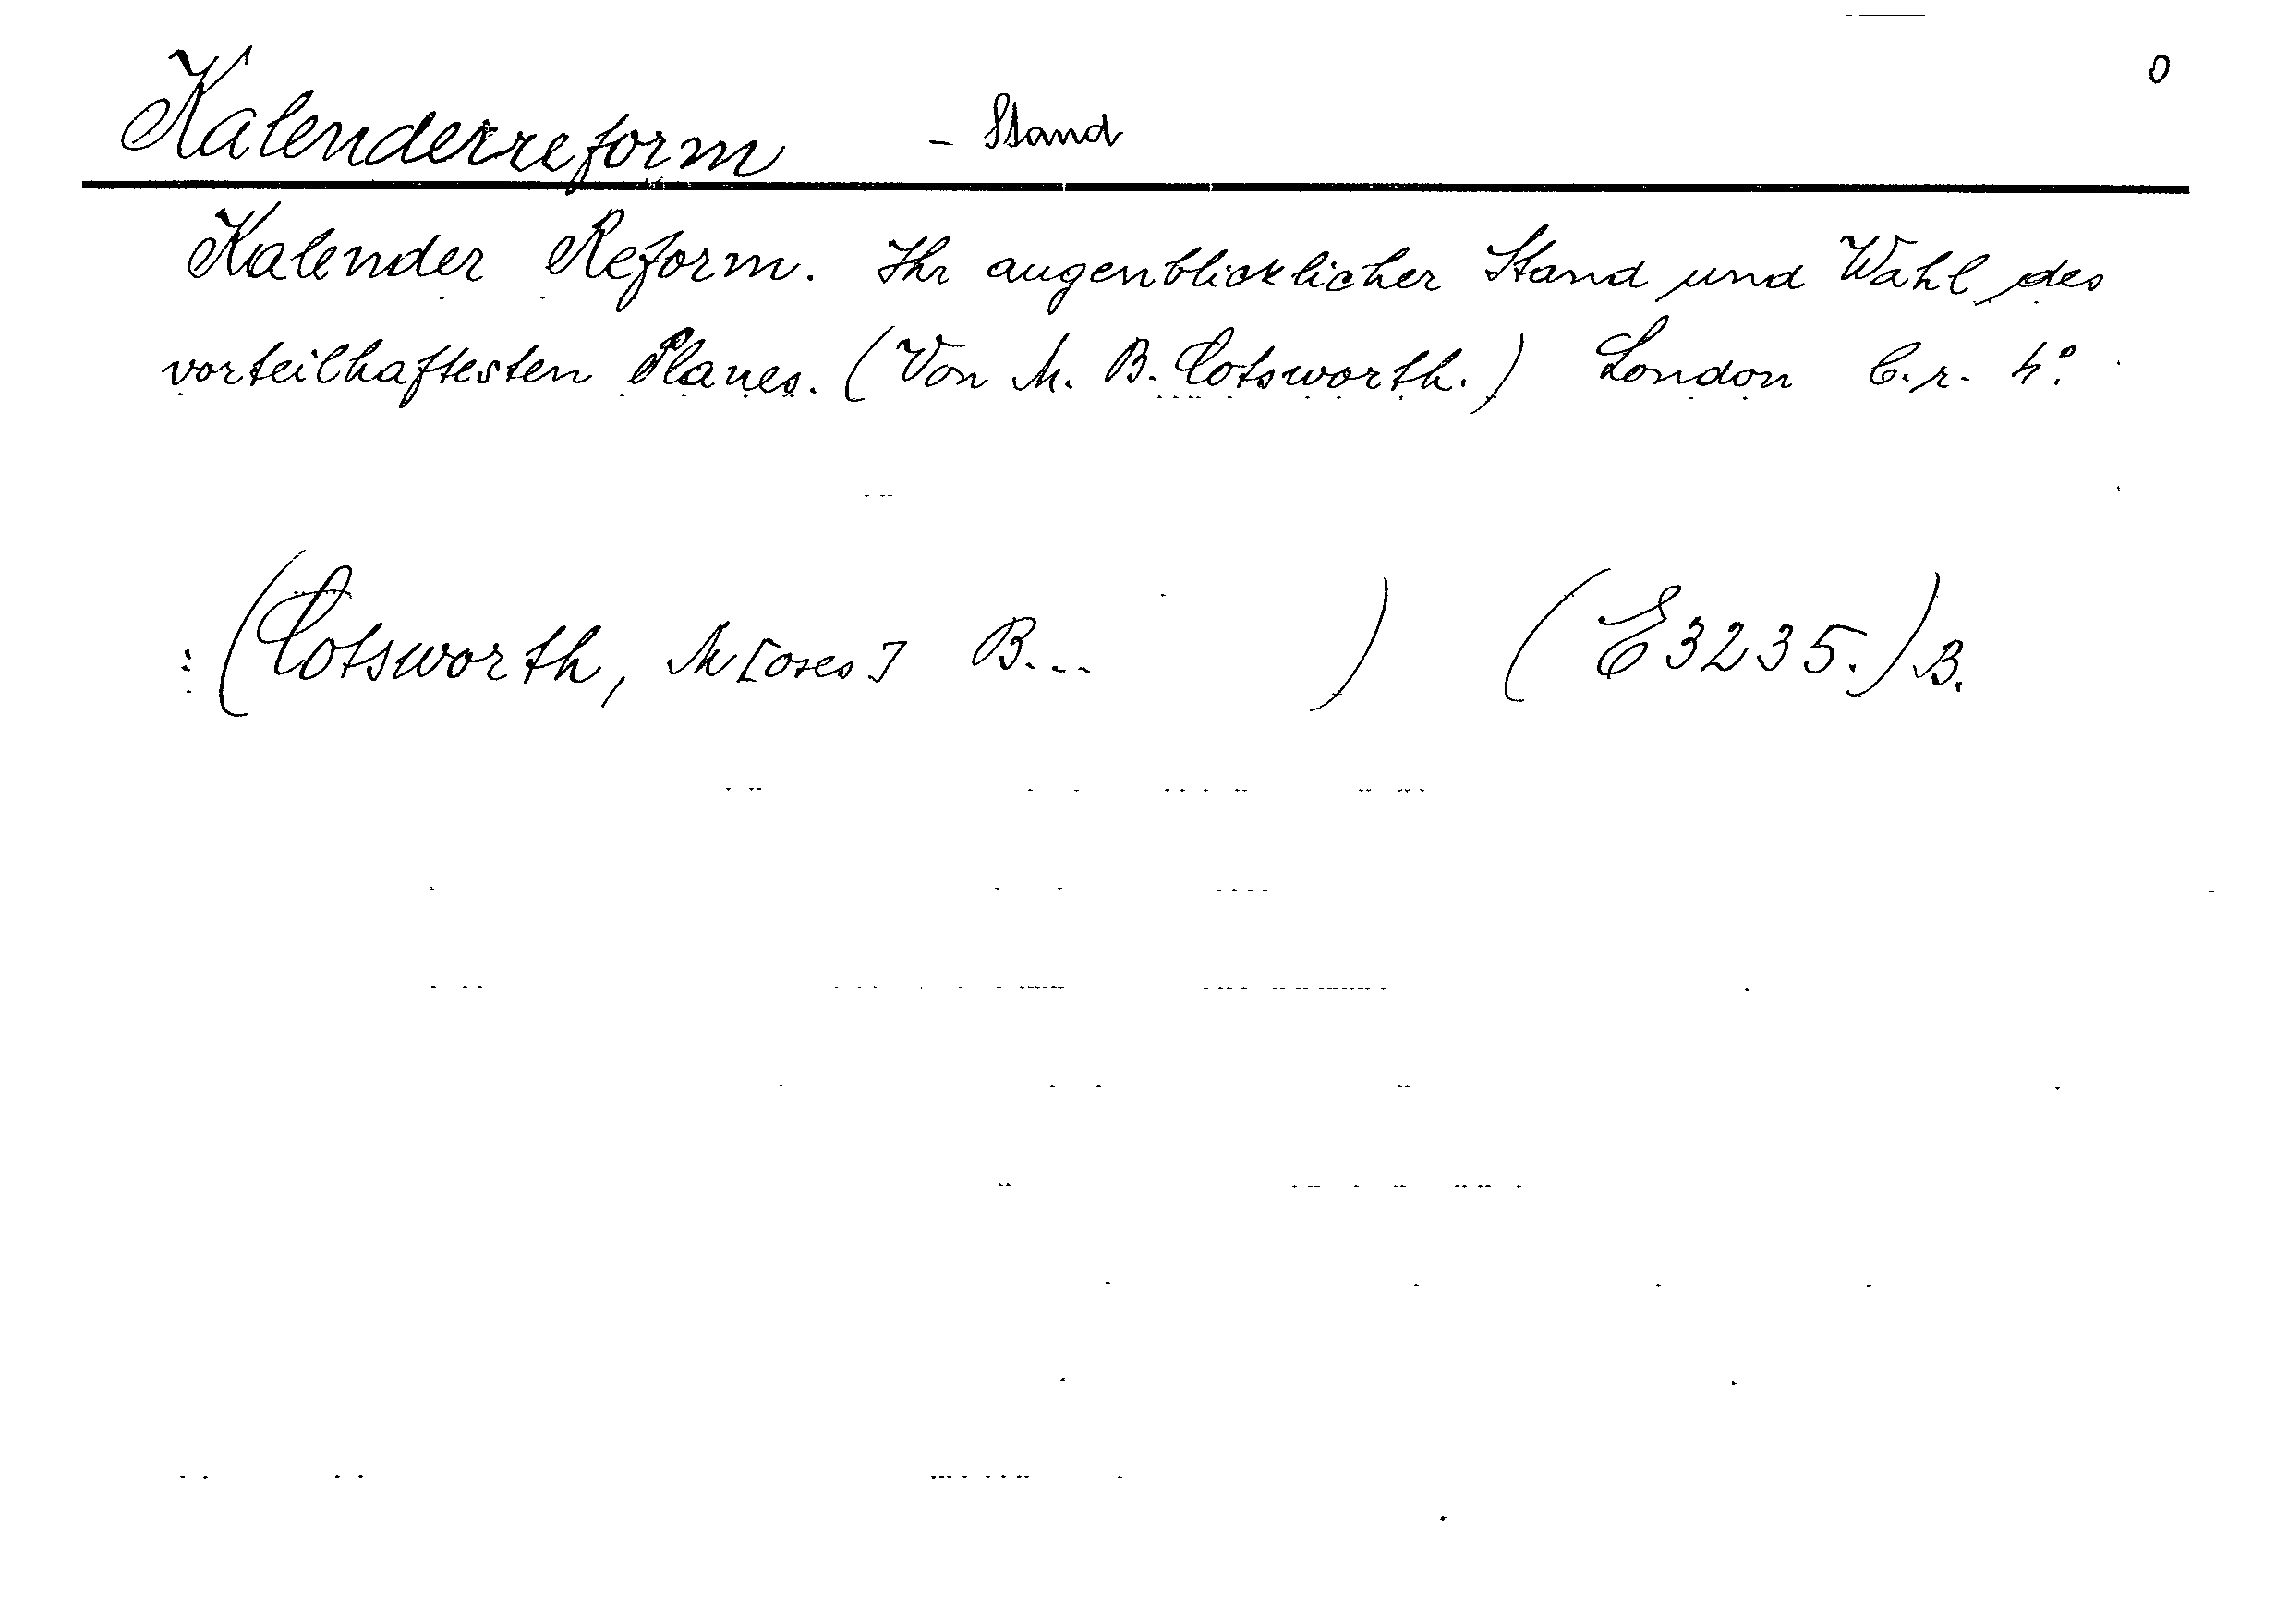 0
Kalenderreform - Stand
Kalender Reform. Ihr augenblicklicher Stand und Wahl des
vorteilhaftesten Planes. (Von M. B. Cotsworth.) London C. r. 4°.
: (Cotsworth, M[oses] B... ) (E3235.) B.